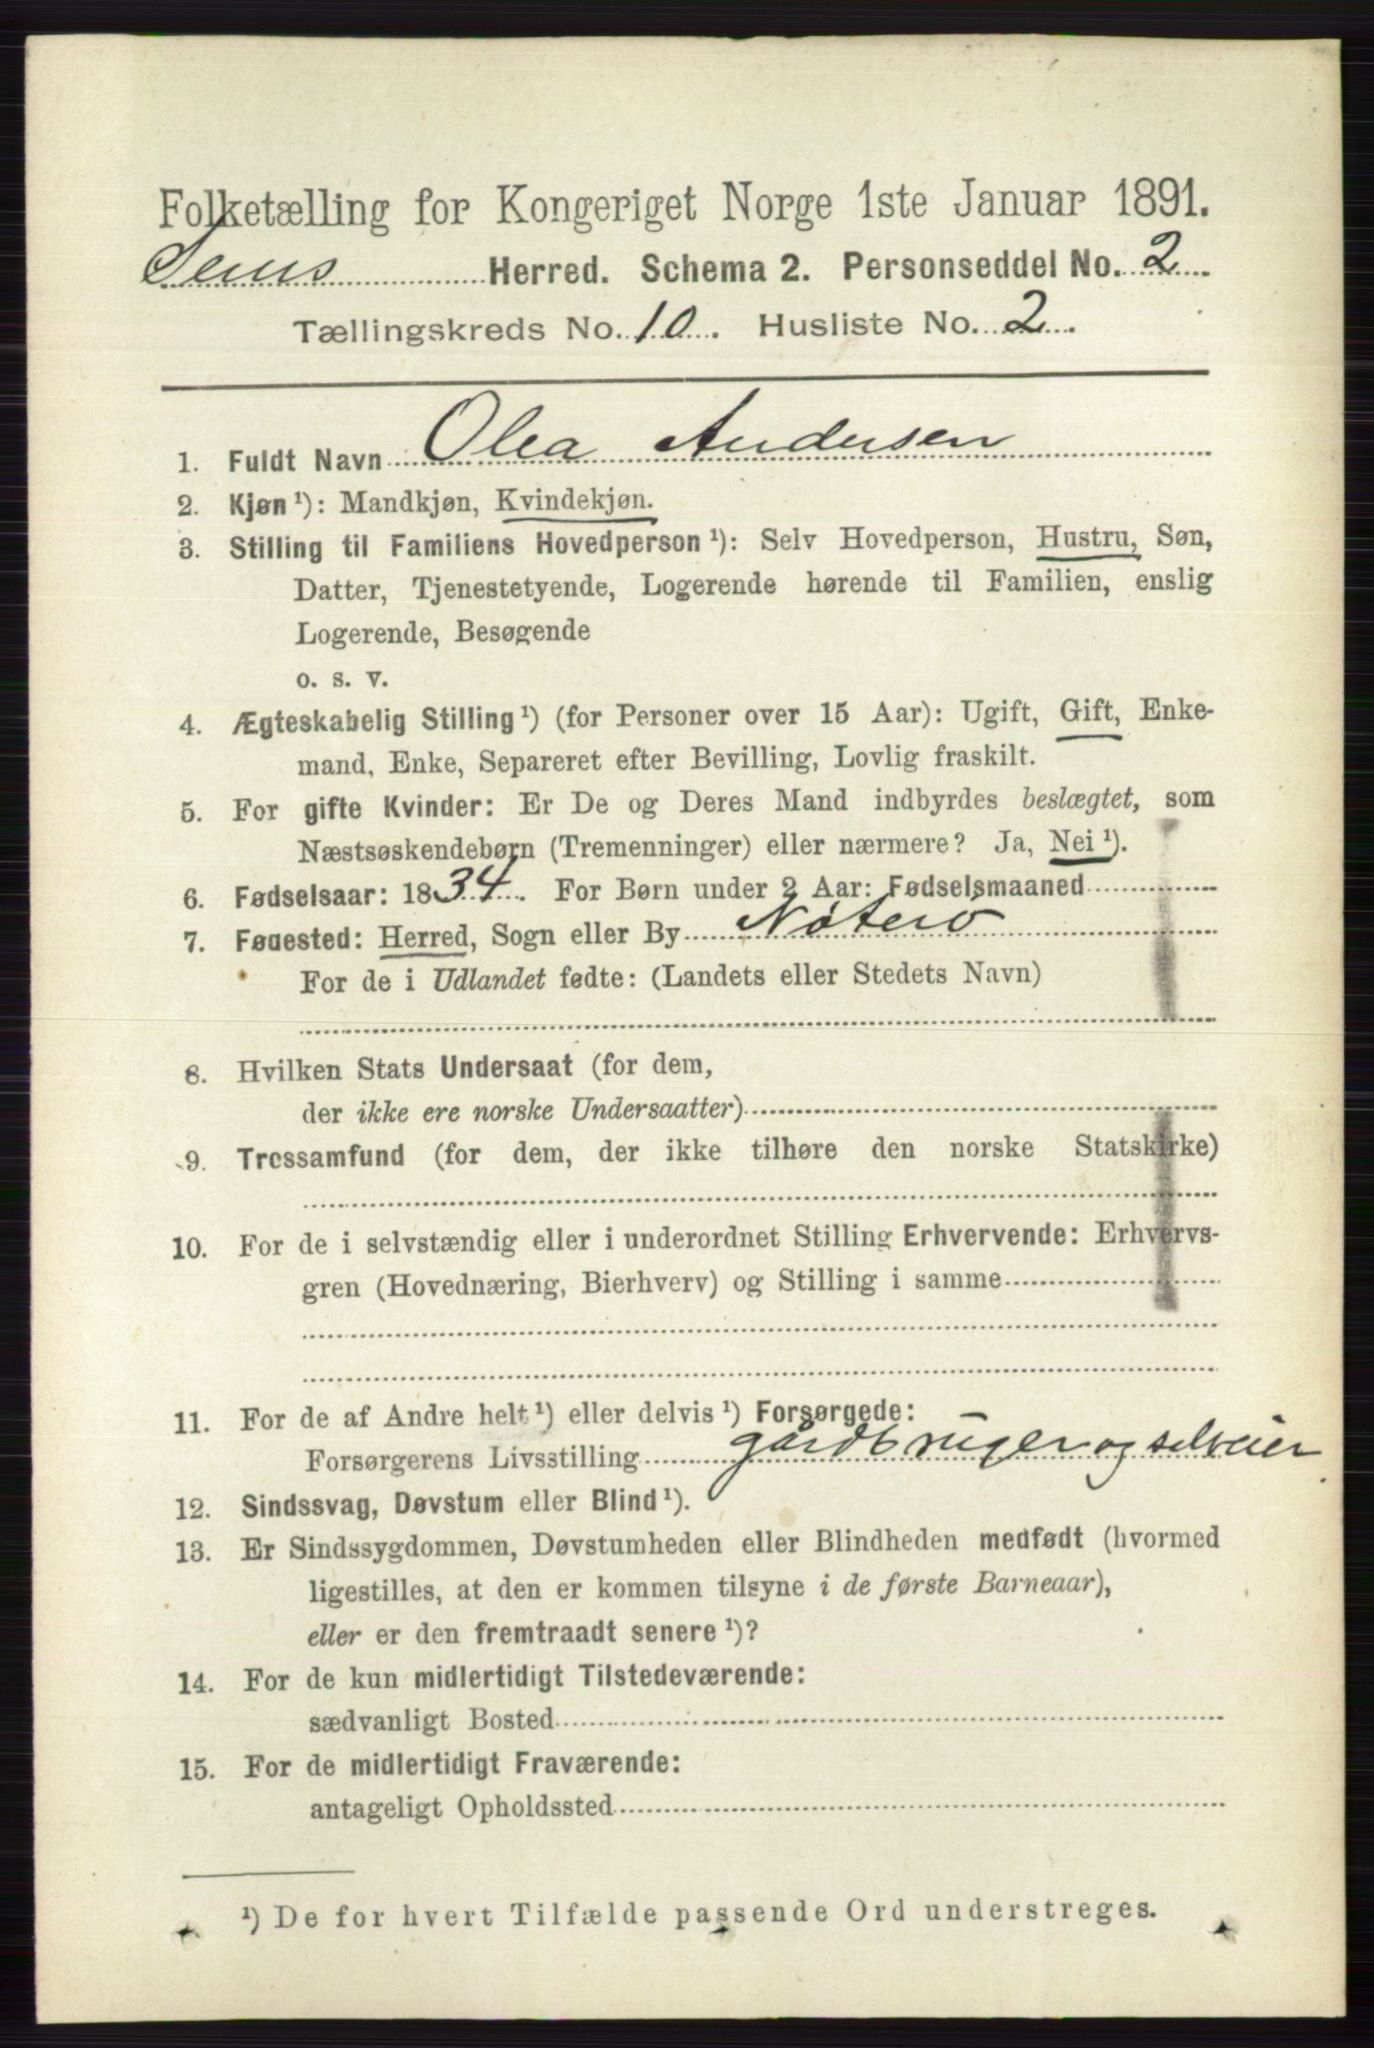 Folketælling for Kongeriget Norge 1ste Januar 1891.
Sems Herred. Schema 2. Personseddel No. 2
Tællingskreds No. 10. Husliste No. 2.
1. Fuldt Navn Olea Andersen
2. Kjøn ¹): Mandkjøn, Kvindekjøn.
3. Stilling til Familiens Hovedperson ¹): Selv Hovedperson, Hustru, Søn,
Datter, Tjenestetyende, Logerende hørende til Familien, enslig
Logerende, Besøgende
o. s. v.
4. Ægteskabelig Stilling ¹) (for Personer over 15 Aar): Ugift, Gift, Enke-
mand, Enke, Separeret efter Bevilling, Lovlig fraskilt.
5. For gifte Kvinder: Er De og Deres Mand indbyrdes beslægtet, som
Næstsøskendebørn (Tremenninger) eller nærmere? Ja, Nei ¹).
6. Fødselsaar: 1834. For Børn under 2 Aar: Fødselsmaaned
7. Fødested: Herred, Sogn eller By Nøterö
For de i Udlandet fødte: (Landets eller Stedets Navn)
8. Hvilken Stats Undersaat (for dem,
der ikke ere norske Undersaatter)
9. Trossamfund (for dem, der ikke tilhøre den norske Statskirke)
10. For de i selvstændig eller i underordnet Stilling Erhvervende: Erhvervs-
gren (Hovednæring, Bierhverv) og Stilling i samme
11. For de af Andre helt ¹) eller delvis ¹) Forsørgede:
Forsørgerens Livsstilling gårdbruger og selveier
12. Sindssvag, Døvstum eller Blind ¹).
13. Er Sindssygdommen, Døvstumheden eller Blindheden medfødt (hvormed
ligestilles, at den er kommen tilsyne i de første Barneaar),
eller er den fremtraadt senere ¹)?
14. For de kun midlertidigt Tilstedeværende:
sædvanligt Bosted
15. For de midlertidigt Fraværende:
antageligt Opholdssted
¹) De for hvert Tilfælde passende Ord understreges.